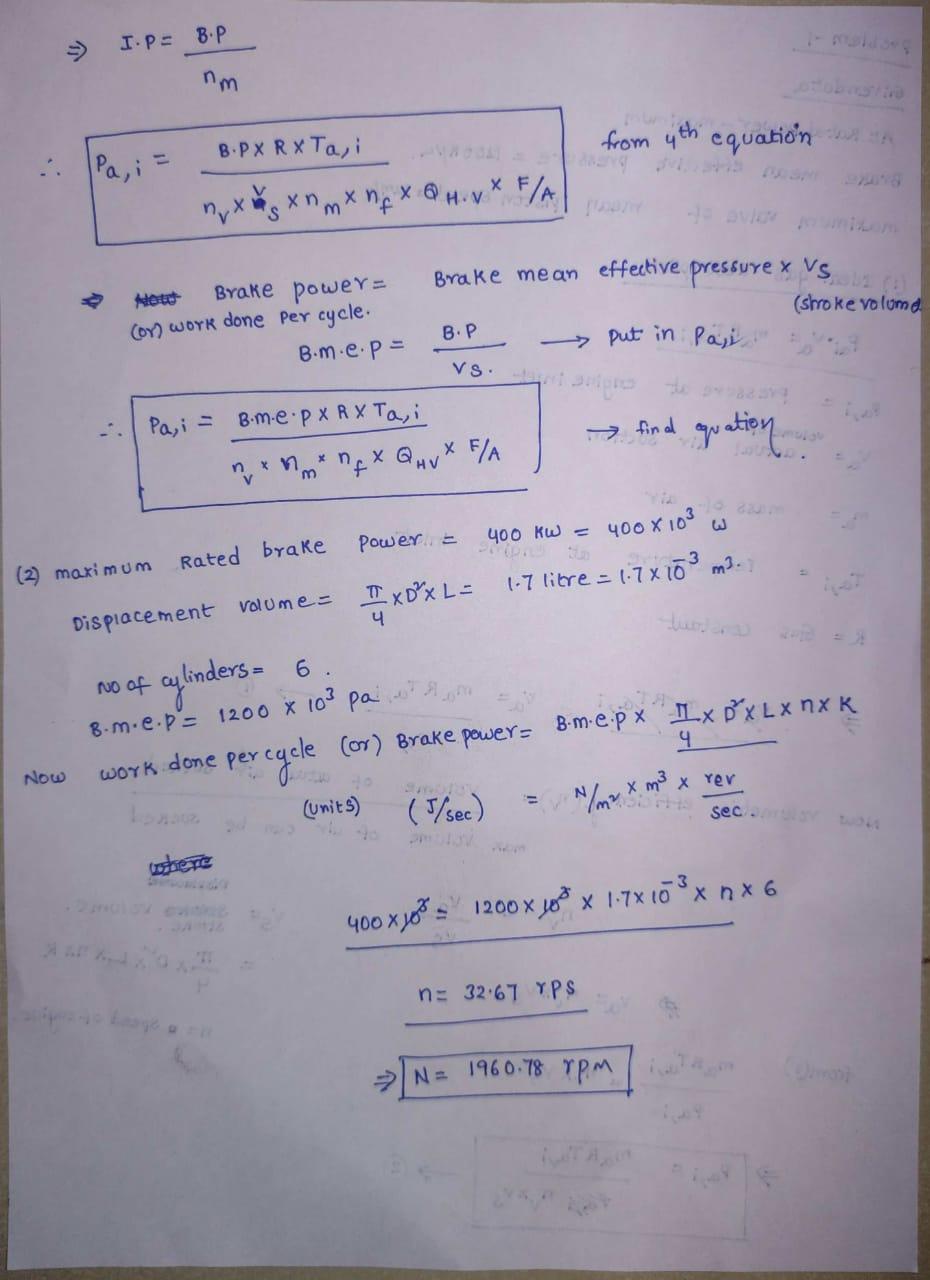 ⇒ I.P = B.P / ηm
∴ Pa,i = B.P X R X Ta,i / ηv x Vs x ηm x ηf x QH.V x F/A from 4th equation
⇒ Brake power = Brake mean effective pressure x Vs
(or) work done per cycle. (stroke volume)
B.m.e.p = B.P / Vs. → put in Pa,i
∴ Pa,i = B.m.e.p X R X Ta,i / ηv x ηm x ηf x QHV x F/A → find equation.
(2) maximum Rated brake power = 400 KW = 400 X 10³ W
Displacement volume = π/4 x D² x L = 1.7 litre = 1.7 x 10⁻³ m³.
No of cylinders = 6.
B.m.e.p = 1200 x 10³ pa
Now work done per cycle (or) Brake power = B.m.e.p x π/4 x D² x L x n x K
(units) (J/sec) = N/m² x m³ x rev/sec.
where
400 x 10³ = 1200 x 10³ x 1.7 x 10⁻³ x n x 6
n = 32.67 rps
⇒ N = 1960.78 rpm